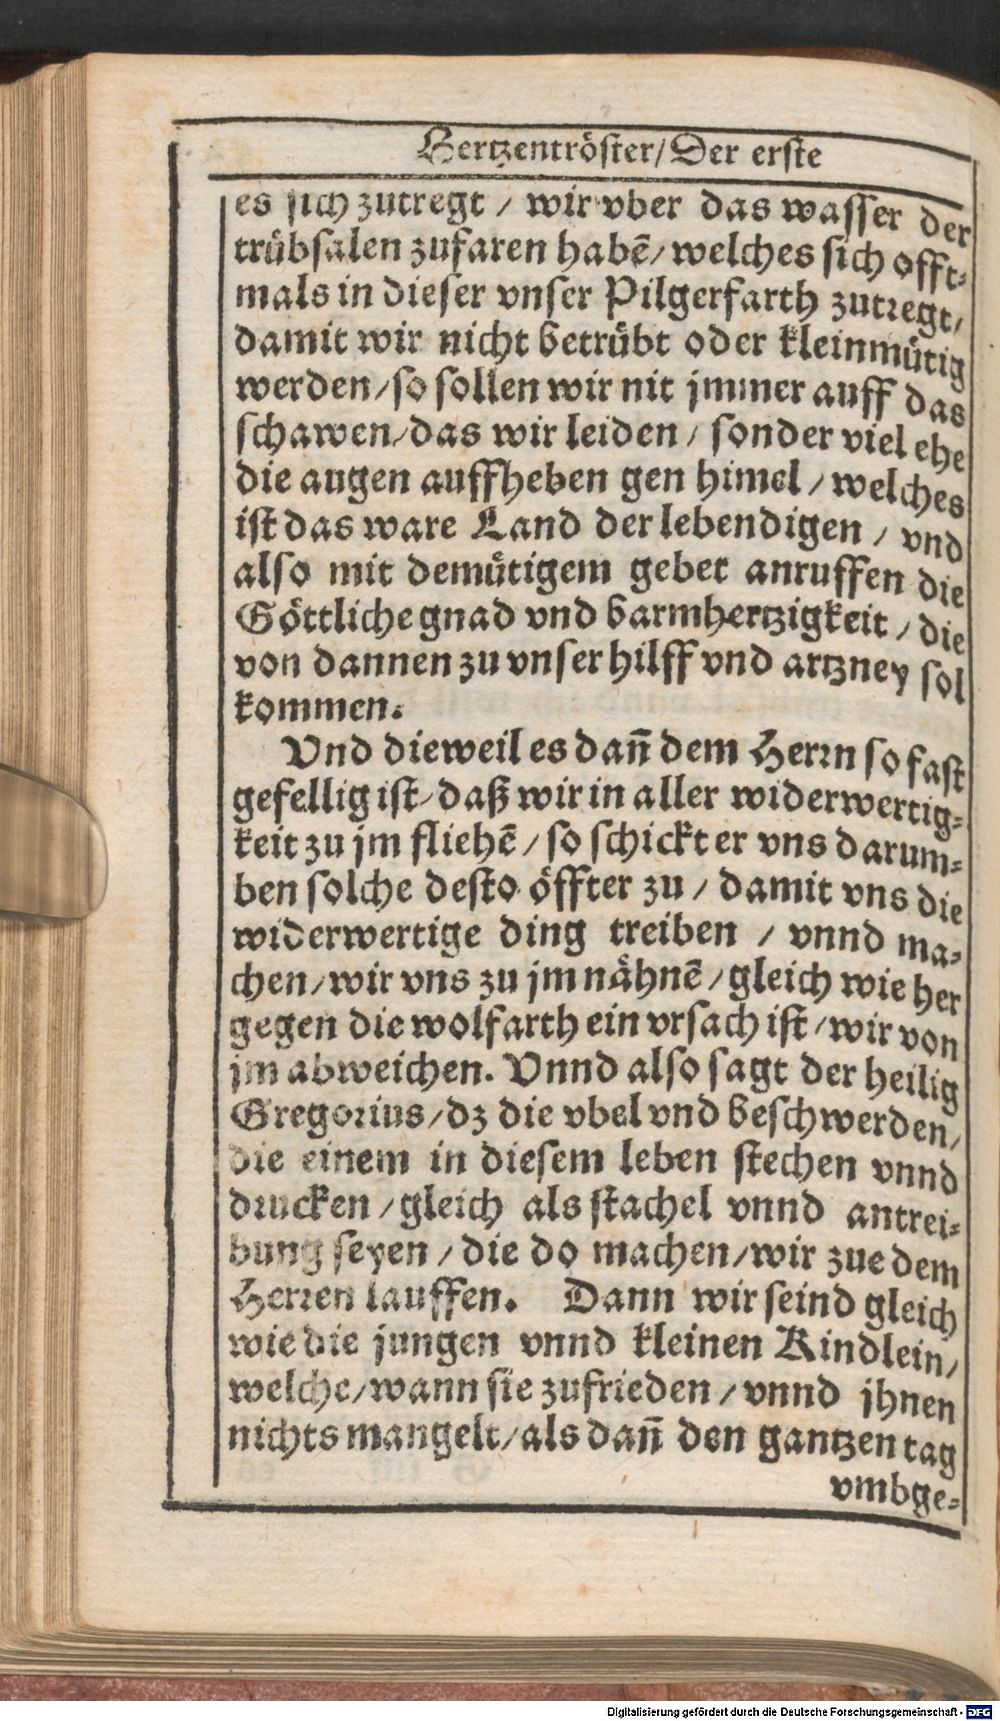 Hertzentröster/Der erste
es sich zutregt / wir vber das wasser der
trübsalen zufaren habē/ welches sich offt⸗
mals in dieser vnser Pilgerfarth zutregt/
damit wir nicht betrübt oder kleinmütig
werden/so sollen wir nit jmmer auff das
schawen/das wir leiden / sonder viel ehe
die augen auffheben gen himel / welches
ist das ware Land der lebendigen / vnd
also mit demütigem gebet anruffen die
Göttliche gnad vnd barmhertzigkeit / die
von dannen zu vnser hilff vnd artzney sol
kommen.
Vnd dieweil es dañ dem Herrn so fast
gefellig ist/daß wir in aller widerwertig⸗
keit zu jm fliehē / so schickt er vns darum⸗
ben solche desto öffter zu / damit vns die
widerwertige ding treiben / vnnd ma⸗
chen/wir vns zu jm nähnē / gleich wie her
gegen die wolfarth ein vrsach ist/wir von
jm abweichen. Vnnd also sagt der heilig
Gregorius/dz die vbel vnd beschwerden/
die einem in diesem leben stechen vnnd
drucken / gleich als stachel vnnd antrei⸗
bung seyen / die do machen/wir zue dem
Herren lauffen. Dann wir seind gleich
wie die jungen vnnd kleinen Kindlein/
welche/wann sie zufrieden / vnnd ihnen
nichts mangelt/als dañ den gantzen tag
vmbge⸗
Digitalisierung gefördert durch die Deutsche Forschungsgemeinschaft - DFG